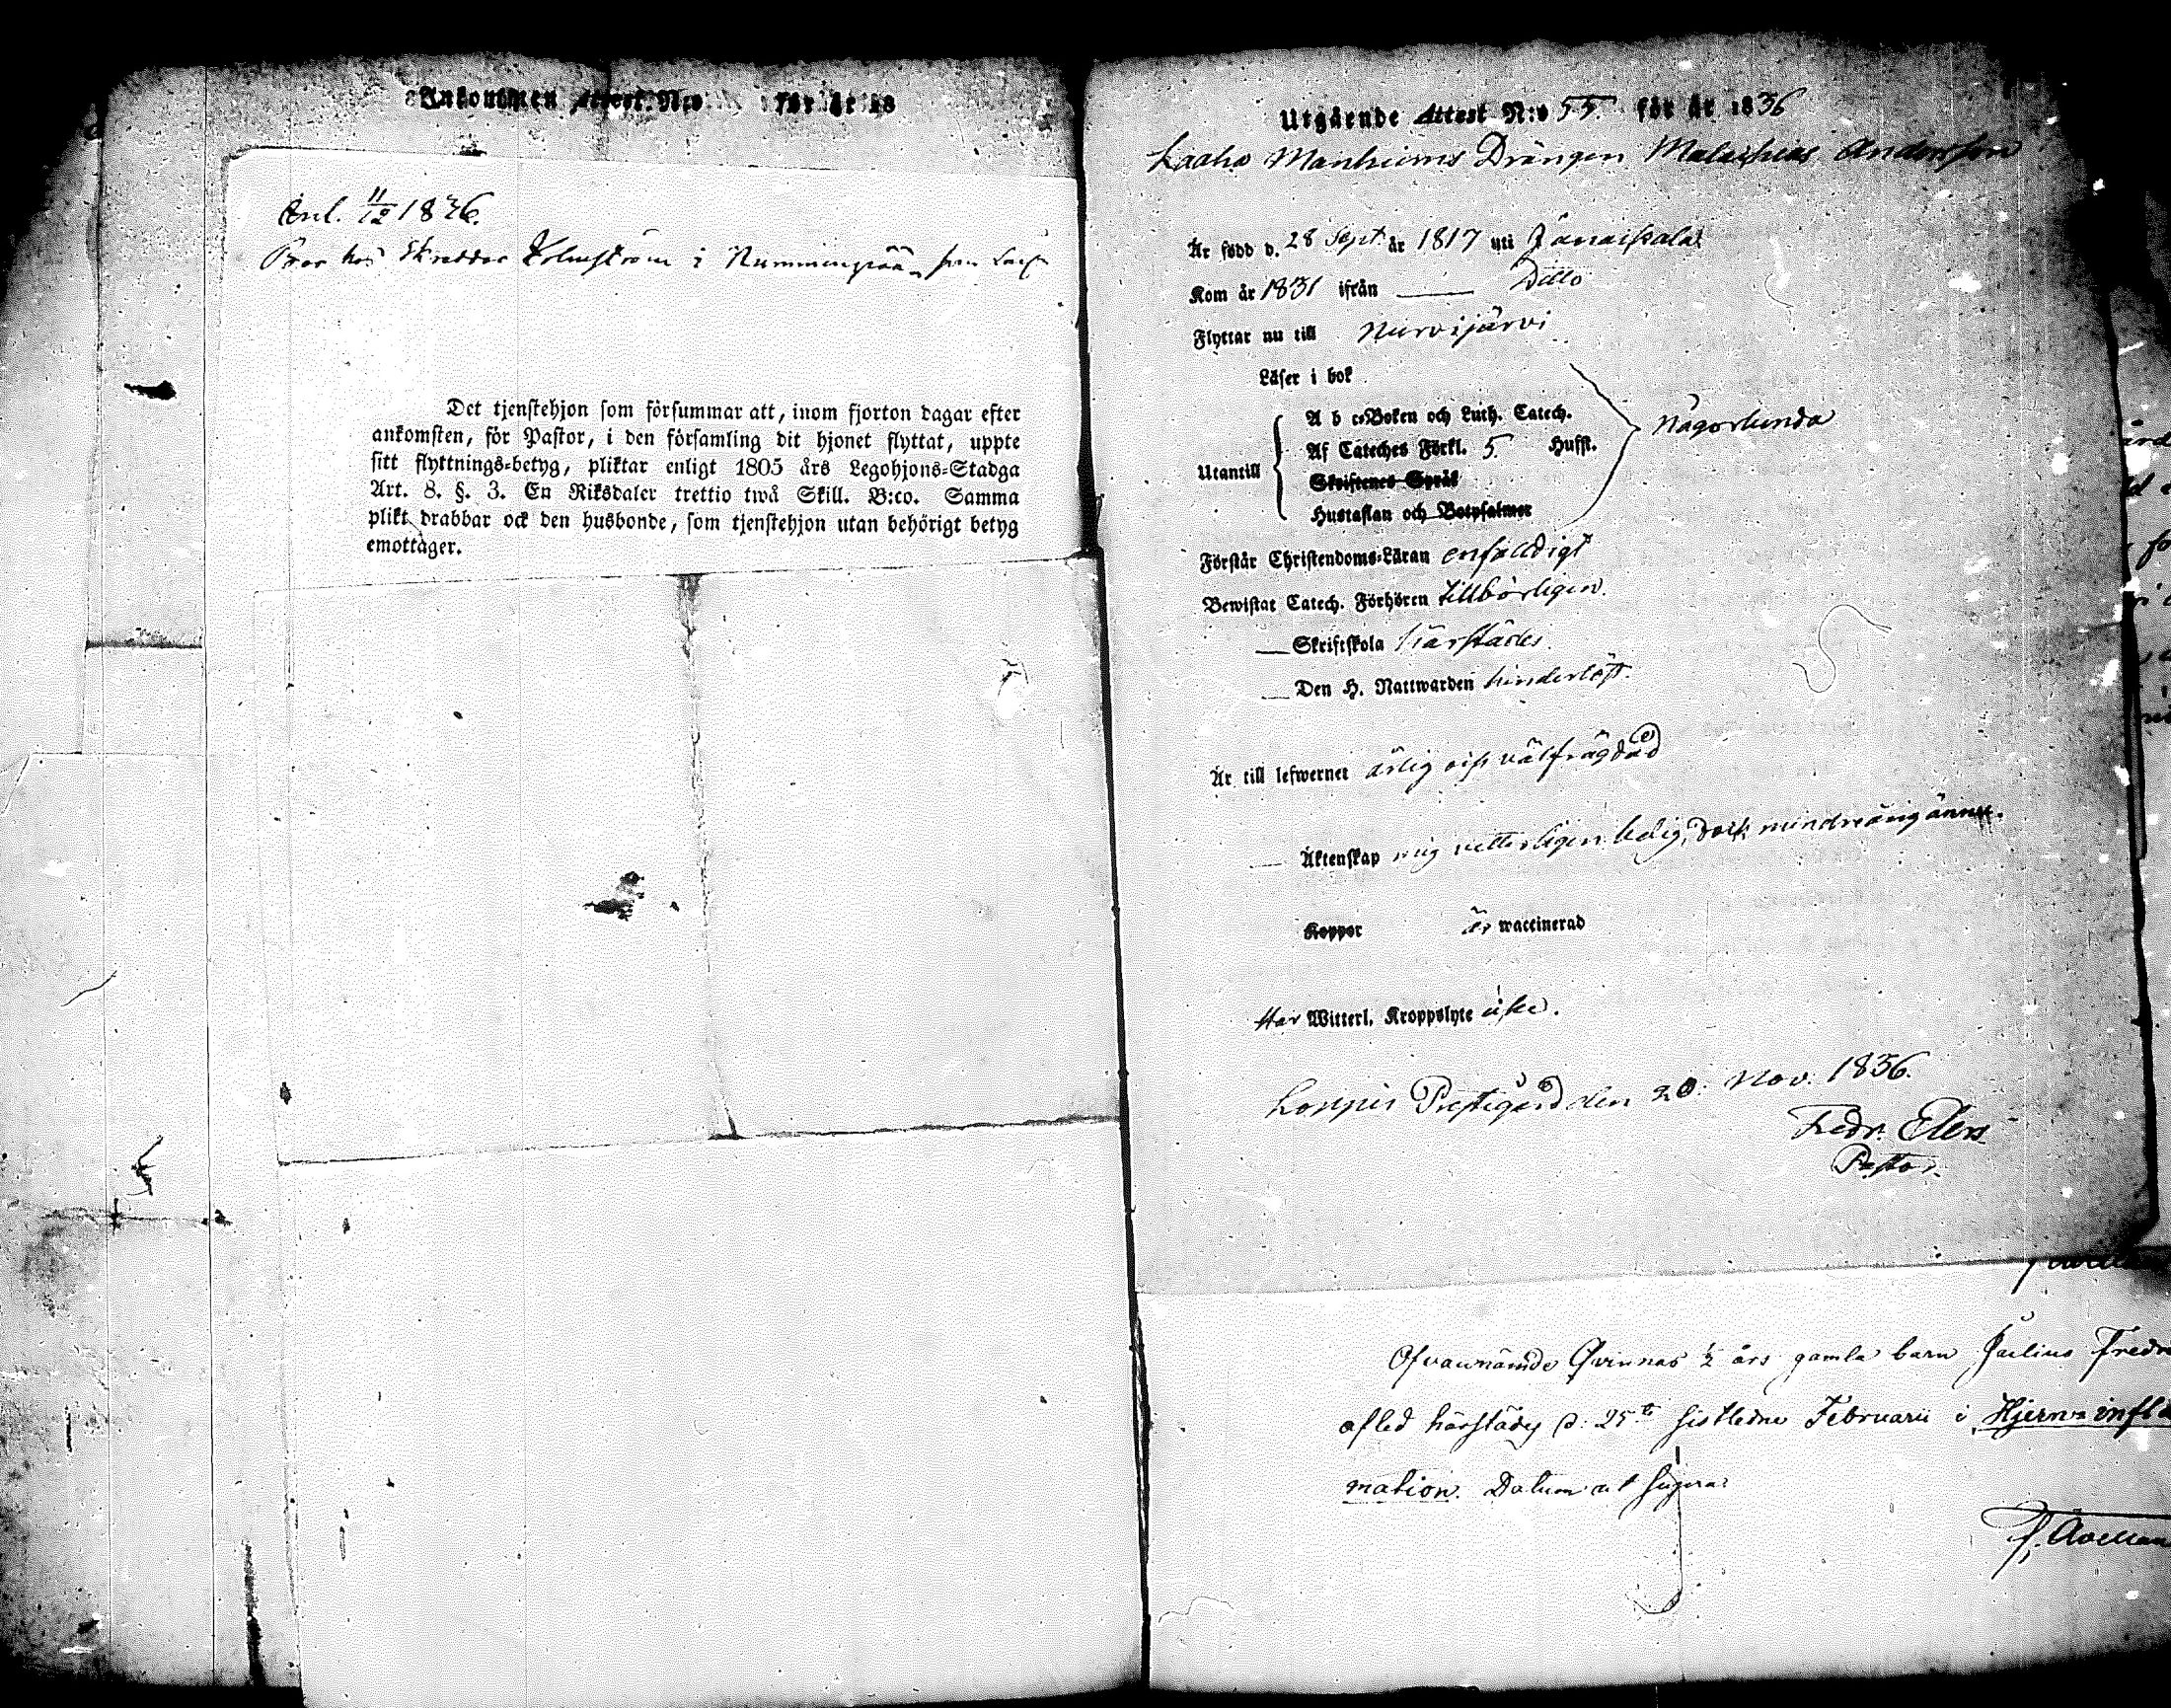 Ankommen Attest N:o för år 18
Anl. 11/12 1836.
Bor hos Skreddar Holmström i Nummenpää som
Det tjenstehjon som försummar att, inom fjorton dagar efter
ankomsten, för Pastor, i den församling dit hjonet flyttat, uppte
sitt flyttnings-betyg, pliktar enligt 1805 års Legohjons-Stadga
Art. 8. §. 3. En Riksdaler trettio twå Skill. B:co. Samma
plikt drabbar ock den husbonde, som tjenstehjon utan behörigt betyg
emottager.
Utgående Attest N:o 55. för år 1836
Laaho Manheims Drängen Malachias Andersson
Är född d. 28 Sept. år 1817 uti Janaikala
Kom år 1831 ifrån — Ditto
Flyttar nu till Nurvijärvi
Läser i bok
A b c-Boken och Luth. Catech.
Af Cateches Förkl. 5. Hufst.
Utantill
Skriftenes Språk
Hustaflan och Botpsalmer
någorlunda
Förstår Christendoms-Läran enfalldigt
Bewistat Catech. Förhören tillbörligen.
— Skriftskola härstädes.
— Den H. Nattwarden hinderlöst.
Är till lefwernet ärlig och välfrägdad
— Äktenskap mig vetterligen ledig, dock mindreårig ännu.
Koppor är waccinerad
Har Witterl. Kroppslyte icke.
Loppis Prestgård den 20. Nov. 1836.
Fredr. Elers
Pastor.
Ofvannämde Qvinnas ½ års gamla barn Julius Fredr
afled härstädes d: 25te sistledne Februarii i Hjerninfla
mation. Datum ut supra